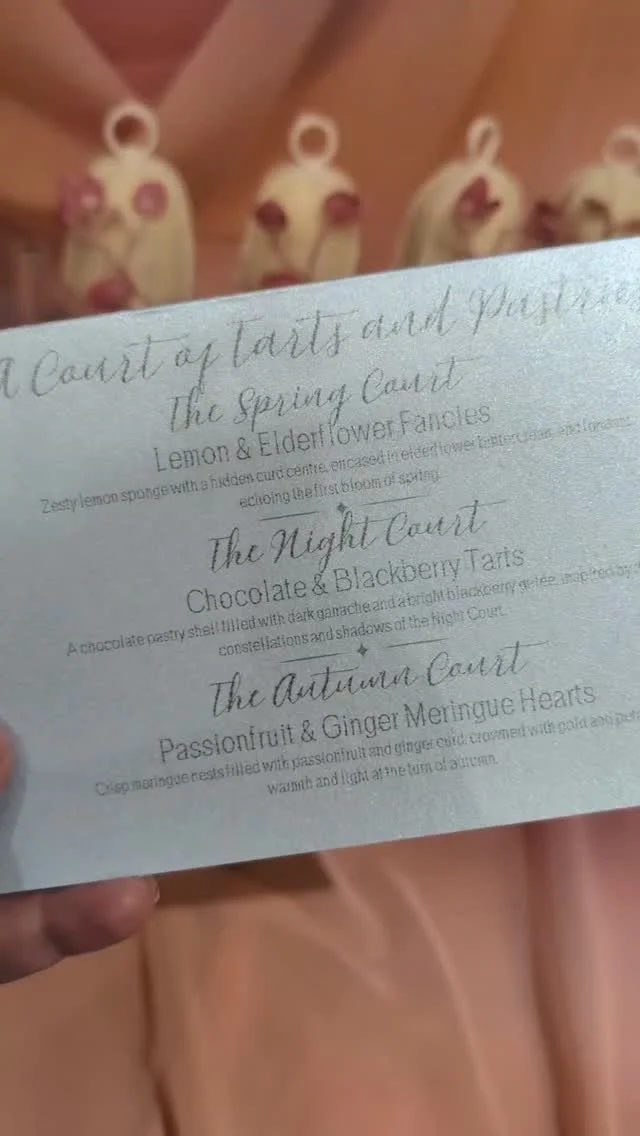 A Court of Tarts and Pastries
The Spring Court
Lemon & Elderflower Fancies
Zesty lemon sponge with a hidden curd centre, encased in elderflower buttercream, and fondant
echoing the first bloom of spring.
The Night Court
Chocolate & Blackberry Tarts
A chocolate pastry shell filled with dark ganache and a bright blackberry gelée, inspired by
constellations and shadows of the Night Court.
The Autumn Court
Passionfruit & Ginger Meringue Hearts
Crisp meringue nests filled with passionfruit and ginger curd, crowned with gold and
warmth and light at the turn of autumn.